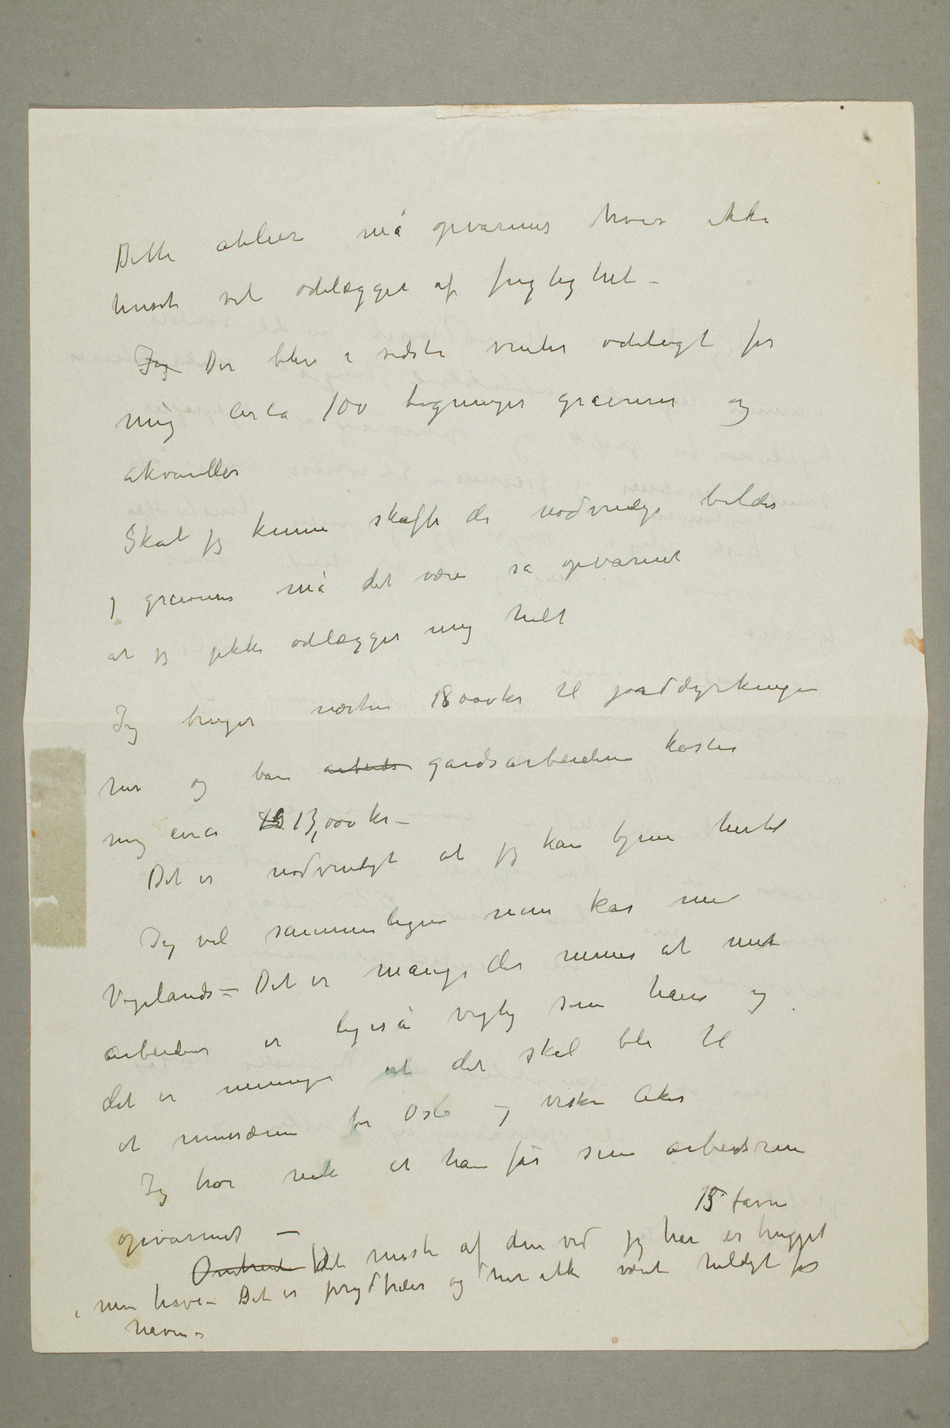 Dette atelier må opvarmes hvis ikke
huset vil ødelægges af fugtighet –
Jeg Der blev i sidste vinter ødelagt for
mig circa 100 tegninger gravurer og
akvareller
Skal jeg kunne skaffe de nødvendige bilder
og gravurer må det være så opvarmet
at jeg ikke ødelægger mig helt
Jeg bruger næsten 18000kr til jorddyrkningen
her og bare arbeids gårdsarbeidere koster
mig circa 13,000 kr –
Det er nødvendigt at jeg kan tjene hertil
Jeg vil sammenligne mine kår med
Vigelands – Det er mange der mener at mit
arbeider er ligeså vigtig som hans og
det er meningen at det skal bli til
et museum for Oslo og vestre Aker
Jeg tror nok at han får sine arbeidsrum
opvarmet –
15 favne
Omtrent Det meste af den ved jeg har er hugget
i min have – Det er prydtræer og har ikke været heldigt for
haven –